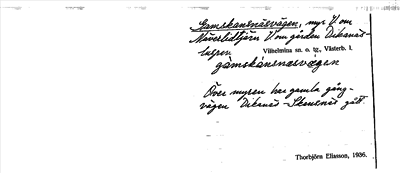 Gamskansnäsvägen, myr V om
Mäverlidtjärn V om gården Dikanäs-
Vilhelmina sn. o. tg., Västerb. l.
gàmskánsnæsvägen
Över myren har gamla gång-
vägen Dikanäs - Skansnäs gått.
Thorbjörn Eliasson, 1936.